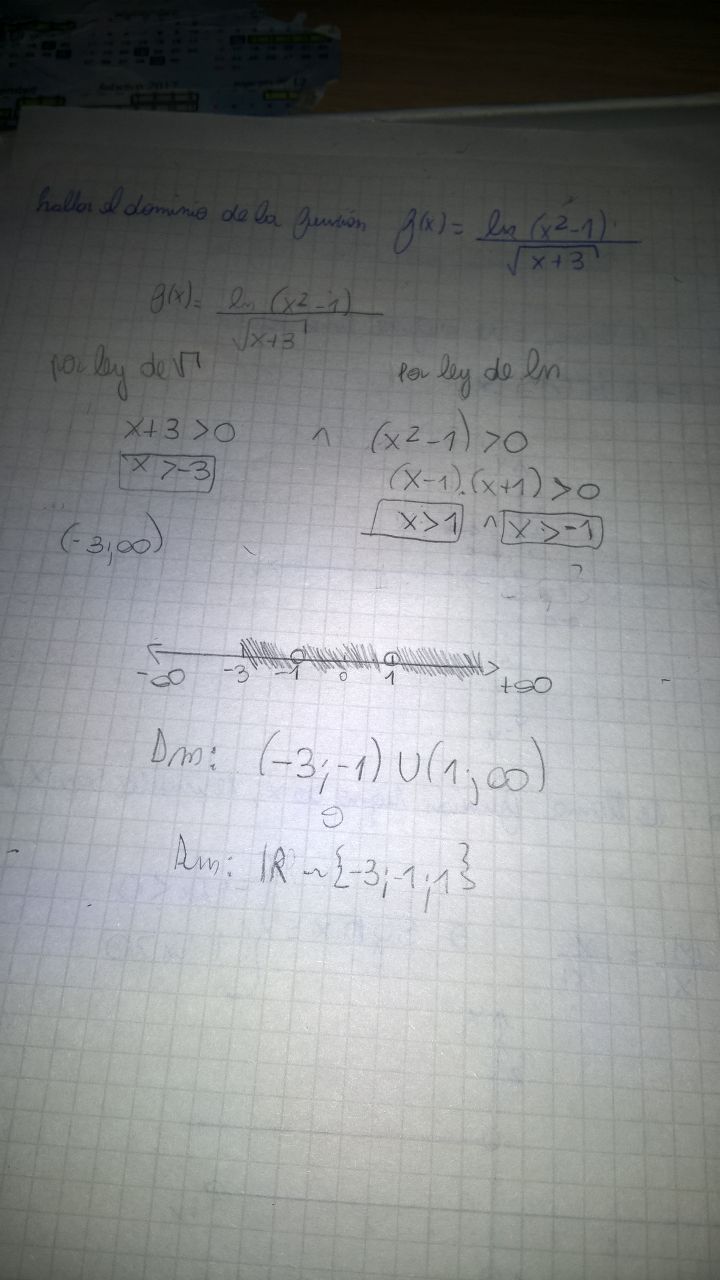 hallar el dominio de la función g(x) = ln (x²-1) / √x+3
g(x) = ln (x²-1) / √x+3
por ley de √ por ley de ln
x+3 >0 ∧ (x²-1) >0
x >-3 (x-1).(x+1) >0
(-3;∞) x>1 ∧ x>-1
?
-∞ -3 -1 0 1 +∞
Dm: (-3;-1) ∪ (1;∞)
o
Dm: ℝ ~ {-3;-1;1}